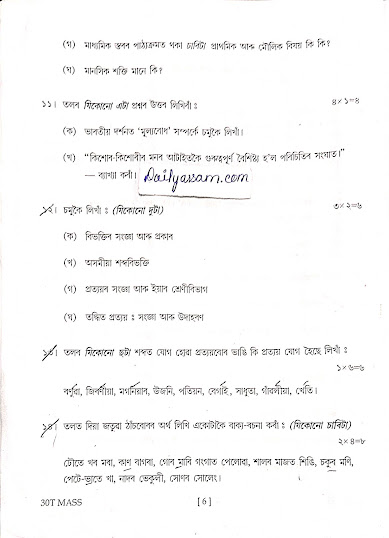 (গ) মাধ্যমিক স্তৰৰ পাঠ্যক্ৰমত থকা চাৰিটা প্ৰাথমিক আৰু মৌলিক বিষয় কি কি?
(ঘ) মানসিক শক্তি মানে কি?
১১। তলৰ যিকোনো এটা প্ৰশ্নৰ উত্তৰ লিখিবাঁ : ৪×১=৪
(ক) ভাৰতীয় দৰ্শনত ‘মূল্যবোধ’ সম্পৰ্কে চমুকৈ লিখাঁ।
(খ) “কিশোৰ-কিশোৰীৰ মনৰ আটাইতকৈ গুৰুত্বপূৰ্ণ বৈশিষ্ট্য হ’ল পৰিচিতিৰ সংঘাত।”
— ব্যাখ্যা কৰাঁ।
Dailyassam.com
১২। চমুকৈ লিখাঁ : (যিকোনো দুটা) ৩×২=৬
(ক) বিভক্তিৰ সংজ্ঞা আৰু প্ৰকাৰ
(খ) অসমীয়া শব্দবিভক্তি
(গ) প্ৰত্যয়ৰ সংজ্ঞা আৰু ইয়াৰ শ্ৰেণীবিভাগ
(ঘ) তদ্ধিত প্ৰত্যয় : সংজ্ঞা আৰু উদাহৰণ
১৩। তলৰ যিকোনো ছটা শব্দত যোগ হোৱা প্ৰত্যয়বোৰ ভাঙি কি প্ৰত্যয় যোগ হৈছে লিখাঁ :
১×৬=৬
বৰ্ণুৱা, জিৰণীয়া, মগনিয়াৰ, উজনি, পতিয়ন, বেগাই, সাধুতা, গাঁৱলীয়া, খেতি।
১৪। তলত দিয়া জতুৱা ঠাঁচবোৰৰ অৰ্থ লিখি একোটাকৈ বাক্য-ৰচনা কৰাঁ : (যিকোনো চাৰিটা)
২×৪=৮
ঢৌতে খৰ মৰা, কাণ বাগৰা, গোৰ মাৰি গংগাত পেলোৱা, শালৰ মাজত শিঙি, চকুৰ মণি,
পেটে-ভাতে খা, নাদৰ ভেকুলী, সোণৰ সোলেং।
30T MASS [ 6 ]